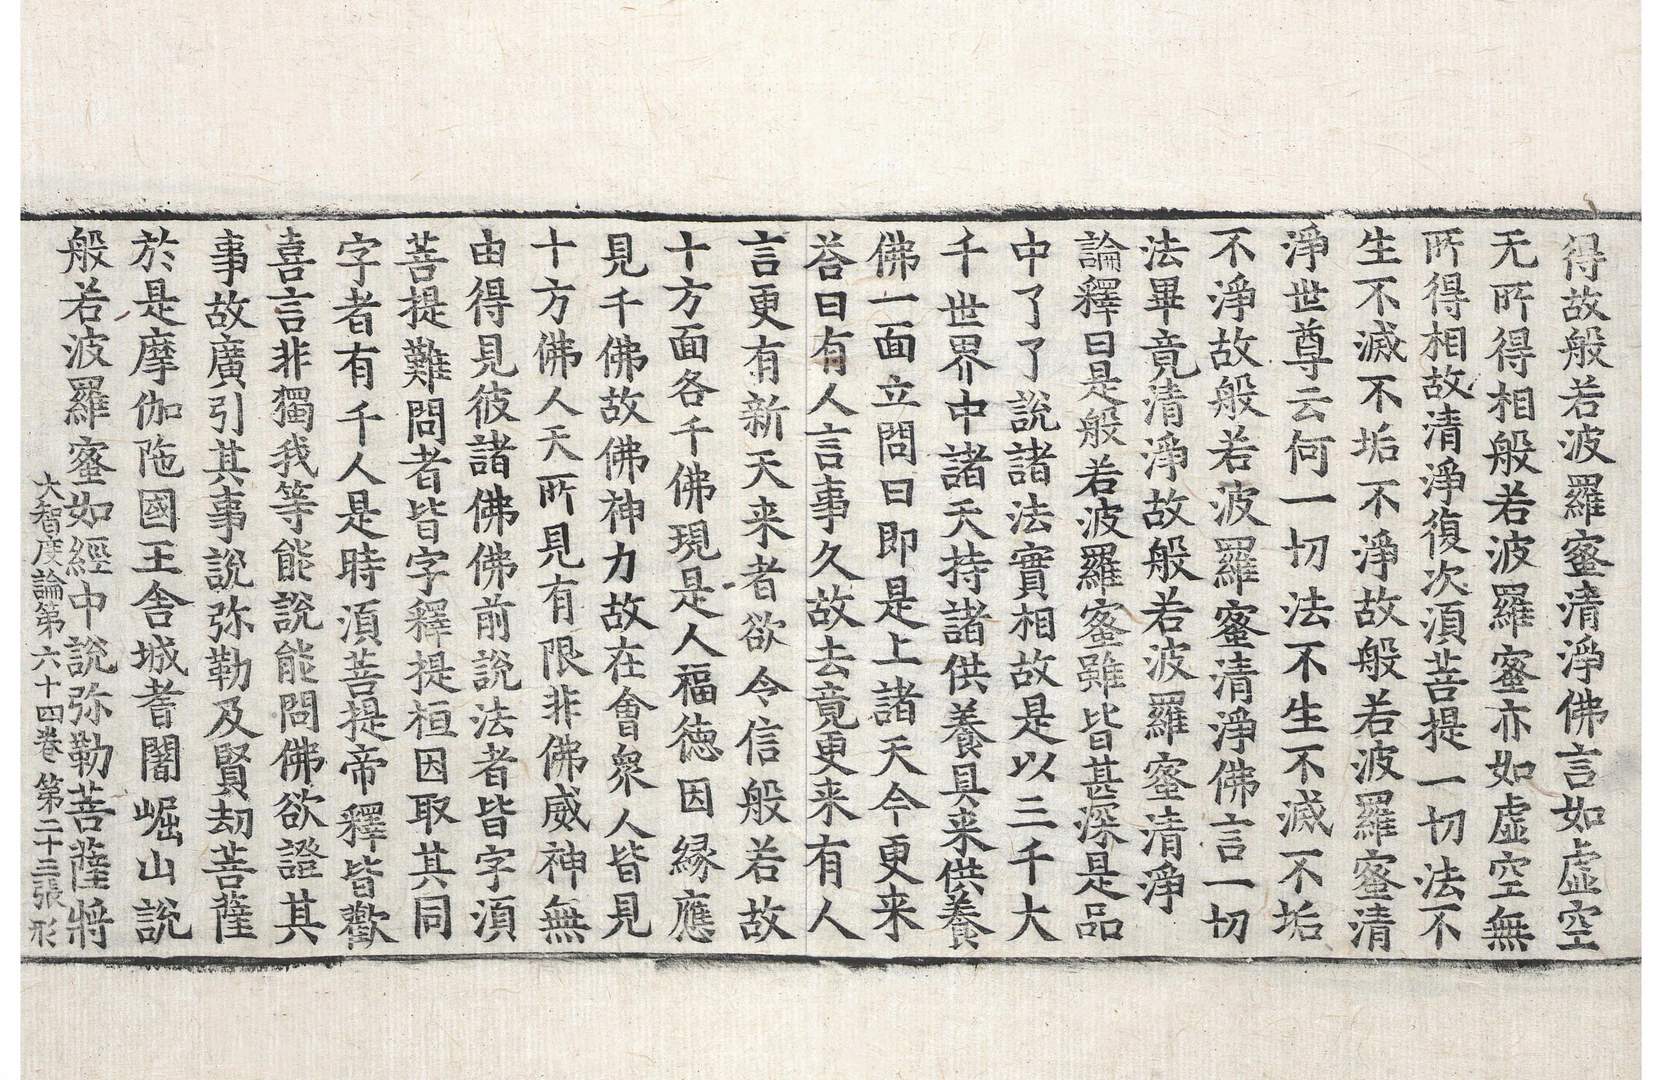 得故般若波羅蜜清淨佛言如虛空
无所得相般若波羅蜜亦如虛空無
所得相故清淨復次湏菩提一切法不
生不滅不垢不淨故般若波羅蜜清
淨世尊云何一切法不生不滅不垢
不淨故般若波羅蜜清淨佛言一切
法畢竟清淨故般若波羅蜜清淨
論釋曰是般若波羅蜜雖皆甚深是品
中了了說諸法實相故是以三千大
千世界中諸天持諸供養具来供養
佛一面立問曰即是上諸天今更来
荅曰有人言事久故去竟更来有人
言更有新天来者欲令信般若故
十方面各千佛現是人福徳因縁應
見千佛故佛神力故在會衆人皆見
十方佛人天所見有限非佛威神無
由得見彼諸佛佛前說法者皆字湏
菩提難問者皆字釋提桓因取其同
字者有千人是時湏菩提帝釋皆歡
喜言非獨我等能說能問佛欲證其
事故廣引其事說弥勒及賢劫菩薩
於是摩伽陁國王舎城耆闍崛山說
般若波羅蜜如經中說弥勒菩薩將
大智度論第六十四卷 第二十三張 形